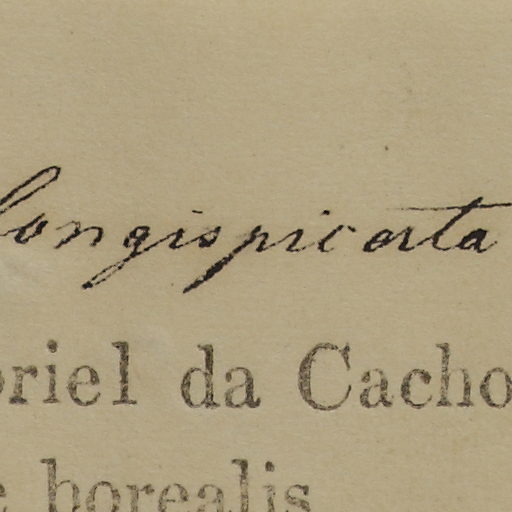 longispicata
briel da Cacho
e borealis